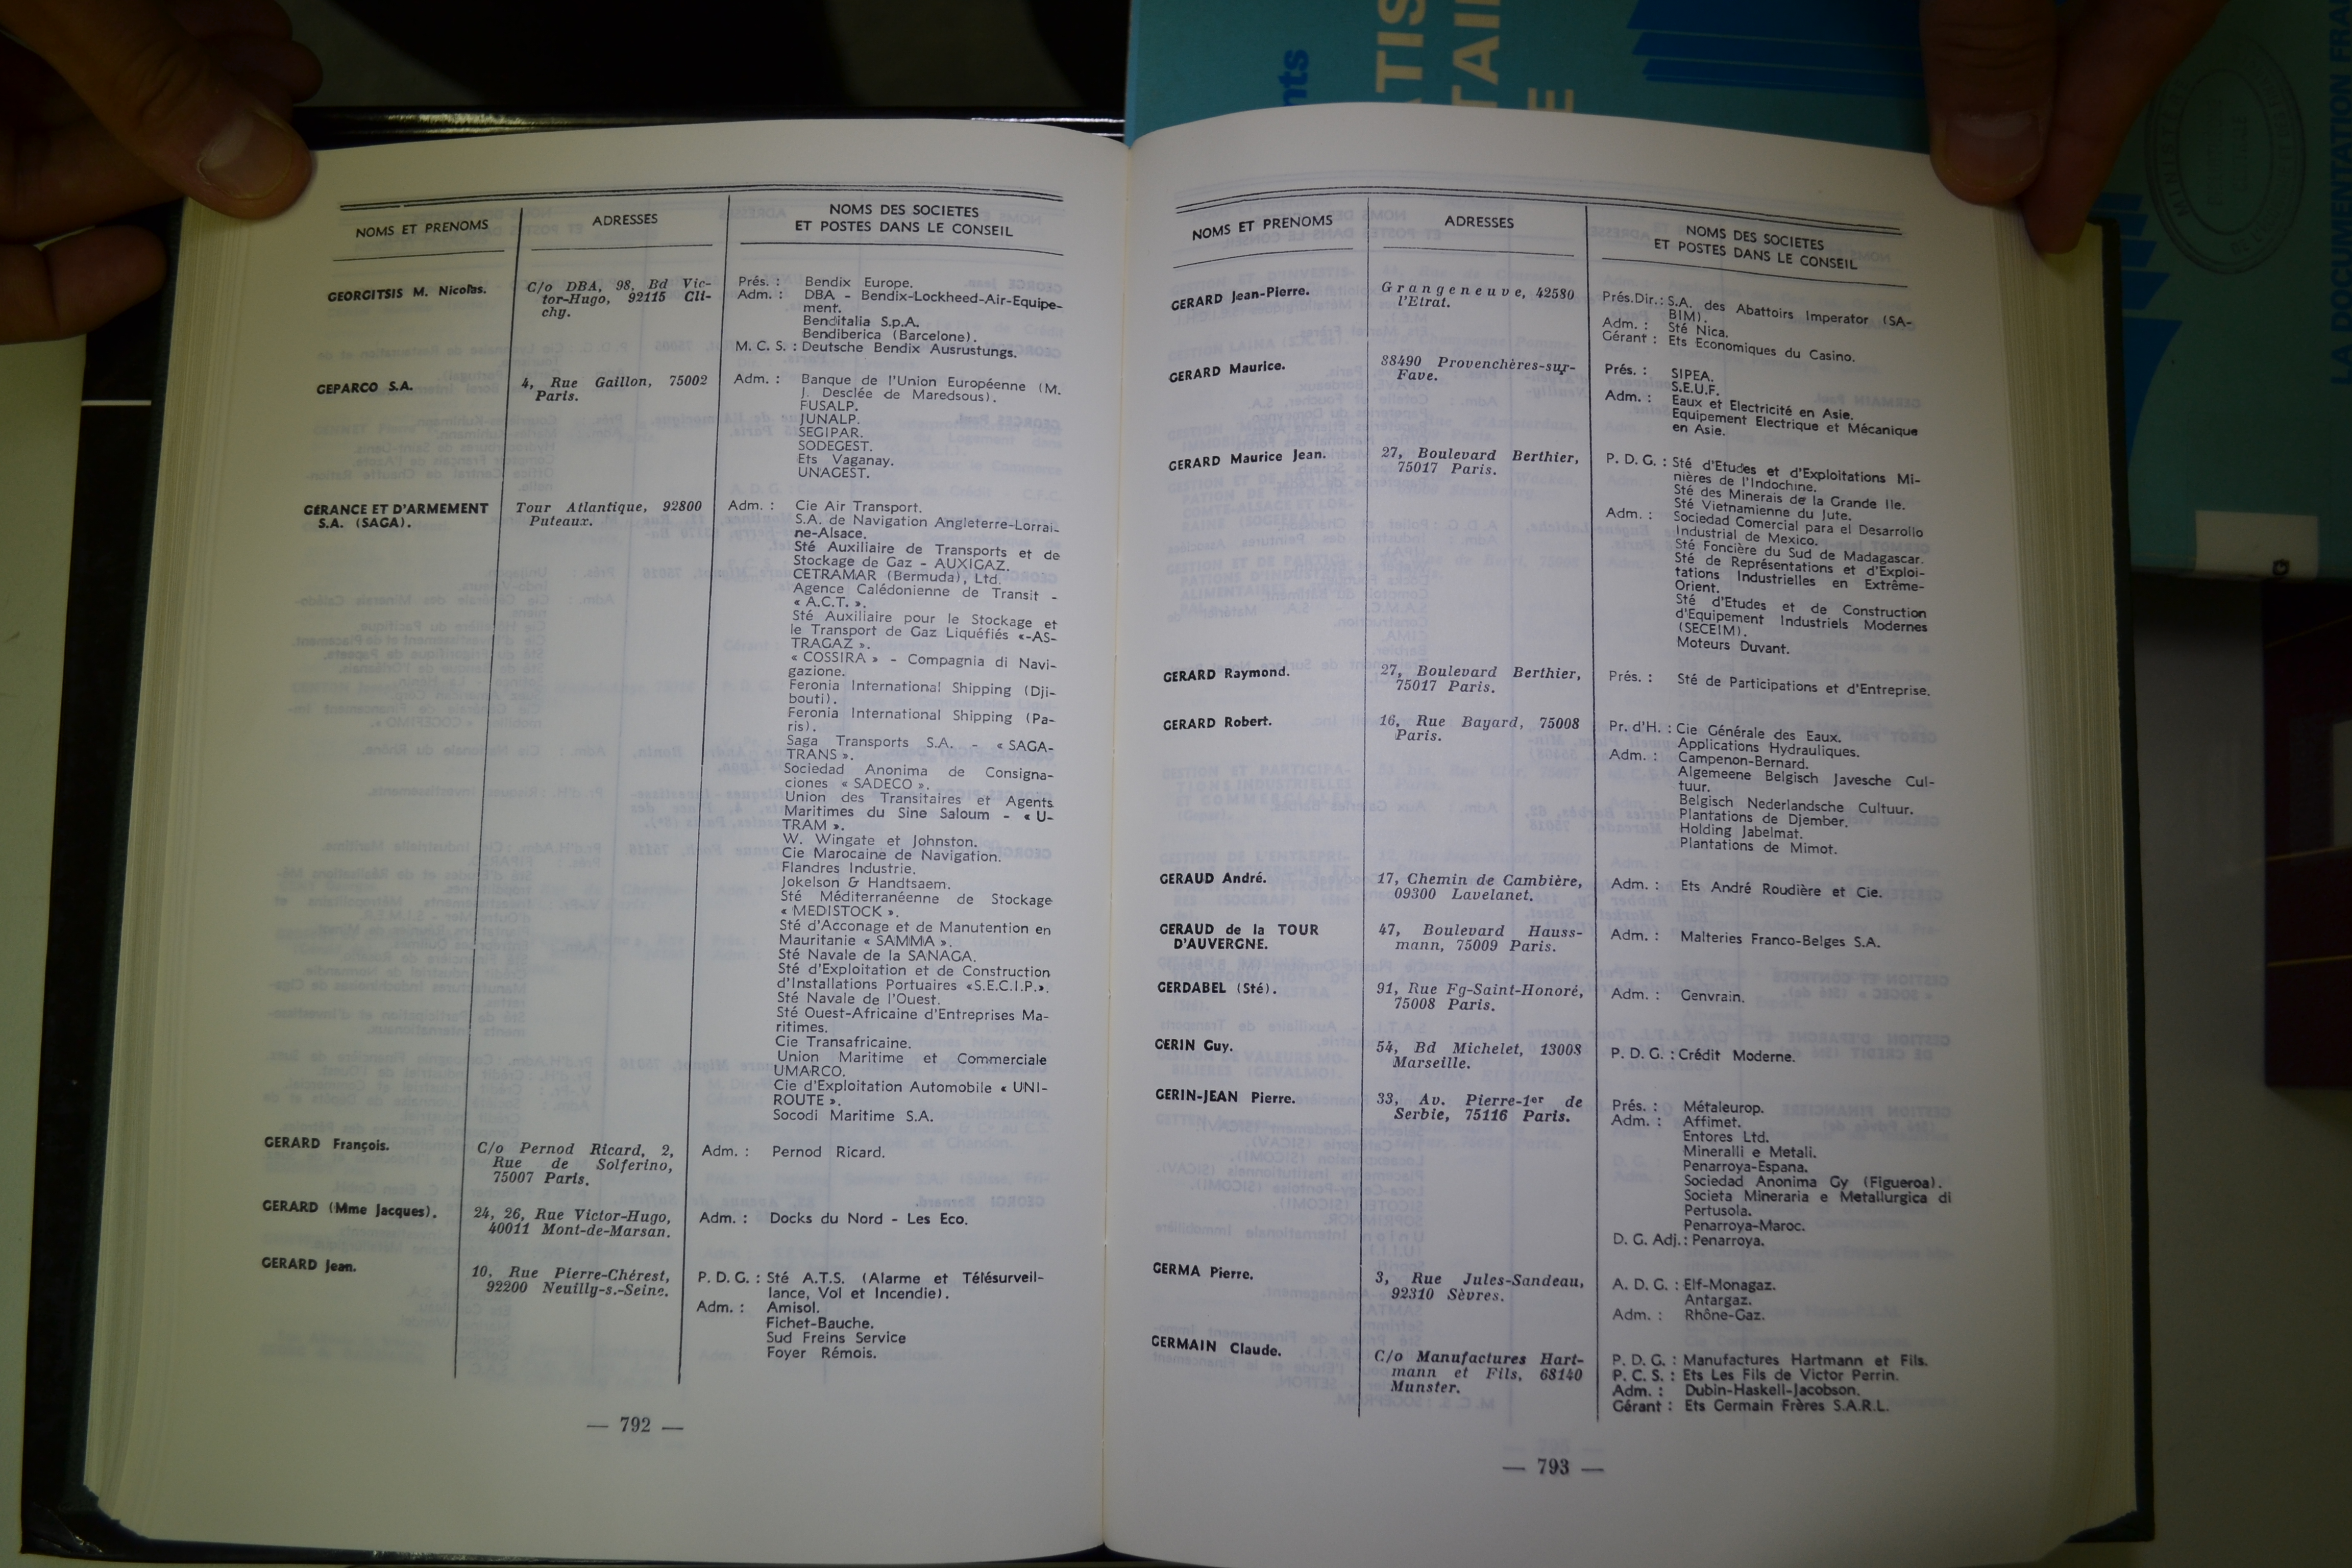 NOMS ET PRENOMS
ADRESSES
NOMS DES SOCIETES
ET POSTES DANS LE CONSEIL
GEORGITSIS M. Nicolas.
C/o DBA, 98, Bd Vic-
tor-Hugo, 92115 Cli-
chy.
Prés. : Bendix Europe.
Adm. : DBA - Bendix-Lockheed-Air-Equipe-
ment.
Benditalia S.p.A.
Bendiberica (Barcelone).
M. C. S. : Deutsche Bendix Ausrustungs.
GEPARCO S.A.
4, Rue Gaillon, 75002
Paris.
Adm. : Banque de l'Union Européenne (M.
J. Desclée de Maredsous).
FUSALP.
JUNALP.
SEGIPAR.
SODEGEST.
Ets Vaganay.
UNAGEST.
GÉRANCE ET D'ARMEMENT
S.A. (SAGA).
Tour Atlantique, 92800
Puteaux.
Adm. : Cie Air Transport.
S.A. de Navigation Angleterre-Lorrai-
ne-Alsace.
Sté Auxiliaire de Transports et de
Stockage de Gaz - AUXIGAZ.
CETRAMAR (Bermuda), Ltd.
Agence Calédonienne de Transit -
« A.C.T. ».
Sté Auxiliaire pour le Stockage et
le Transport de Gaz Liquéfiés «-AS-
TRAGAZ ».
« COSSIRA » - Compagnia di Navi-
gazione.
Feronia International Shipping (Dji-
bouti).
Feronia International Shipping (Pa-
ris).
Saga Transports S.A. - « SAGA-
TRANS ».
Sociedad Anonima de Consigna-
ciones « SADECO ».
Union des Transitaires et Agents
Maritimes du Sine Saloum - « U-
TRAM ».
W. Wingate et Johnston.
Cie Marocaine de Navigation.
Flandres Industrie.
Jokelson & Handtsaem.
Sté Méditerranéenne de Stockage
« MEDISTOCK ».
Sté d'Acconage et de Manutention en
Mauritanie « SAMMA ».
Sté Navale de la SANAGA.
Sté d'Exploitation et de Construction
d'Installations Portuaires «S.E.C.I.P.».
Sté Navale de l'Ouest.
Sté Ouest-Africaine d'Entreprises Ma-
ritimes.
Cie Transafricaine.
Union Maritime et Commerciale
UMARCO.
Cie d'Exploitation Automobile « UNI-
ROUTE ».
Socodi Maritime S.A.
GERARD François.
C/o Pernod Ricard, 2,
Rue de Solferino,
75007 Paris.
Adm. : Pernod Ricard.
GERARD (Mme Jacques).
24, 26, Rue Victor-Hugo,
40011 Mont-de-Marsan.
Adm. : Docks du Nord - Les Eco.
GERARD Jean.
10, Rue Pierre-Chérest,
92200 Neuilly-s.-Seine.
P. D. G. : Sté A.T.S. (Alarme et Télésurveil-
lance, Vol et Incendie).
Adm. : Amisol.
Fichet-Bauche.
Sud Freins Service
Foyer Rémois.
— 792 —
NOMS ET PRENOMS
ADRESSES
NOMS DES SOCIETES
ET POSTES DANS LE CONSEIL
GERARD Jean-Pierre.
Grangeneuve, 42580
l'Etrat.
Prés.Dir.: S.A. des Abattoirs Imperator (SA-
BIM).
Adm. : Sté Nica.
Gérant : Ets Economiques du Casino.
GERARD Maurice.
88490 Provenchères-sur-
Fave.
Prés. : SIPEA.
S.E.U.F.
Adm. : Eaux et Electricité en Asie.
Equipement Electrique et Mécanique
en Asie.
GERARD Maurice Jean.
27, Boulevard Berthier,
75017 Paris.
P. D. G. : Sté d'Etudes et d'Exploitations Mi-
nières de l'Indochine.
Sté des Minerais de la Grande Ile.
Sté Vietnamienne du Jute.
Adm. : Sociedad Comercial para el Desarrollo
Industrial de Mexico.
Sté Foncière du Sud de Madagascar.
Sté de Représentations et d'Exploi-
tations Industrielles en Extrême-
Orient.
Sté d'Etudes et de Construction
d'Equipement Industriels Modernes
(SECEIM).
Moteurs Duvant.
GERARD Raymond.
27, Boulevard Berthier,
75017 Paris.
Prés. : Sté de Participations et d'Entreprise.
GERARD Robert.
16, Rue Bayard, 75008
Paris.
Pr. d'H. : Cie Générale des Eaux.
Applications Hydrauliques.
Adm. : Campenon-Bernard.
Algemeene Belgisch Javesche Cul-
tuur.
Belgisch Nederlandsche Cultuur.
Plantations de Djember.
Holding Jabelmat.
Plantations de Mimot.
GERAUD André.
17, Chemin de Cambière,
09300 Lavelanet.
Adm. : Ets André Roudière et Cie.
GERAUD de la TOUR
D'AUVERGNE.
47, Boulevard Hauss-
mann, 75009 Paris.
Adm. : Malteries Franco-Belges S.A.
GERDABEL (Sté).
91, Rue Fg-Saint-Honoré,
75008 Paris.
Adm. : Genvrain.
GERIN Guy.
54, Bd Michelet, 13008
Marseille.
P. D. G. : Crédit Moderne.
GERIN-JEAN Pierre.
33, Av. Pierre-1er de
Serbie, 75116 Paris.
Prés. : Métaleurop.
Adm. : Affimet.
Entores Ltd.
Mineralli e Metali.
Penarroya-Espana.
Sociedad Anonima Gy (Figueroa).
Societa Mineraria e Metallurgica di
Pertusola.
Penarroya-Maroc.
D. G. Adj.: Penarroya.
GERMA Pierre.
3, Rue Jules-Sandeau,
92310 Sèvres.
A. D. G. : Elf-Monagaz.
Antargaz.
Adm. : Rhône-Gaz.
GERMAIN Claude.
C/o Manufactures Hart-
mann et Fils, 68140
Munster.
P. D. G. : Manufactures Hartmann et Fils.
P. C. S. : Ets Les Fils de Victor Perrin.
Adm. : Dubin-Haskell-Jacobson.
Gérant : Ets Germain Frères S.A.R.L.
— 793 —
LA DOCUMENTATION FRA